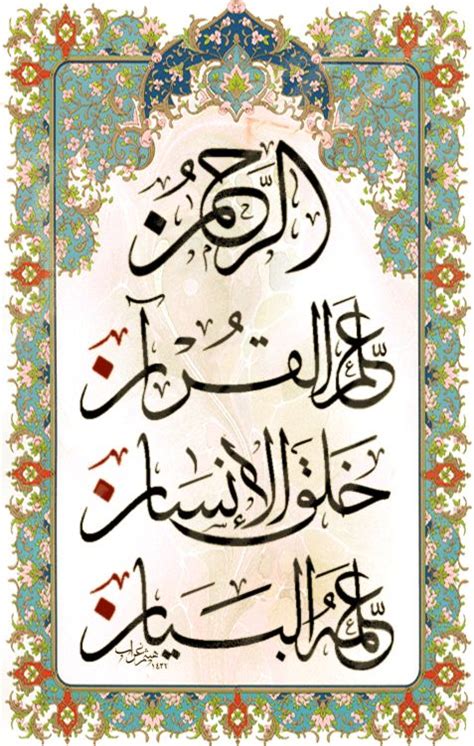 الرَّحْمَنُ
علَّم القرآنَ
خَلَقَ الإنسانَ
علَّمَهُ البَيَانَ
١٤٣٢